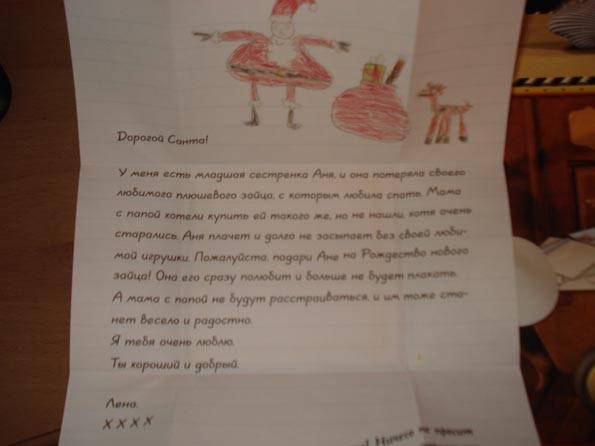 Дорогой Санта!
У меня есть младшая сестренка Аня, и она потеряла своего
любимого плюшевого зайца, с которым любила спать. Мама
с папой хотели купить ей такого же, но не нашли, хотя очень
старались. Аня плачет и долго не засыпает без своей люби-
мой игрушки. Пожалуйста, подари Ане на Рождество нового
зайца! Она его сразу полюбит и больше не будет плакать.
А мама с папой не будут расстраиваться, и им тоже ста-
нет весело и радостно.
Я тебя очень люблю.
Ты хороший и добрый.
Лена.
X X X X
Ничего не